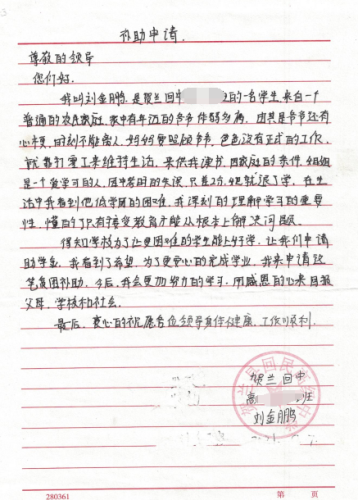 补助申请
尊敬的领导
您们好。
我叫刘金鹏,是贺兰回中 的一名学生,来自一个
普通的农民家庭,家中有年迈的爷爷体弱多病,尤其是爷爷还有
心梗,时刻不能离人,妈妈要照顾爷爷,爸爸没有正式的工作,
就靠打零工来维持生活,来供我读书,因家庭的条件,姐姐
是一个爱学习的人,因中考时的失误,只差2分,她就很了学,在生
活中我看到把低学历的困难,我深刻的理解学习的重要
性,懂的了只有接受教育才能从根本上解决问题。
得知学校为了让更困难的学生能上好学,让我们申请
助学金,我看到了希望,为了更安心的完成学业,我来申请这
笔贫困补助,今后,我会更加努力的学习,用感恩的心来回报
父母,学校和社会。
最后,衷心的祝愿各位领导身体健康,工作顺利。
贺兰回中
高 班
刘金鹏
280361
第 页